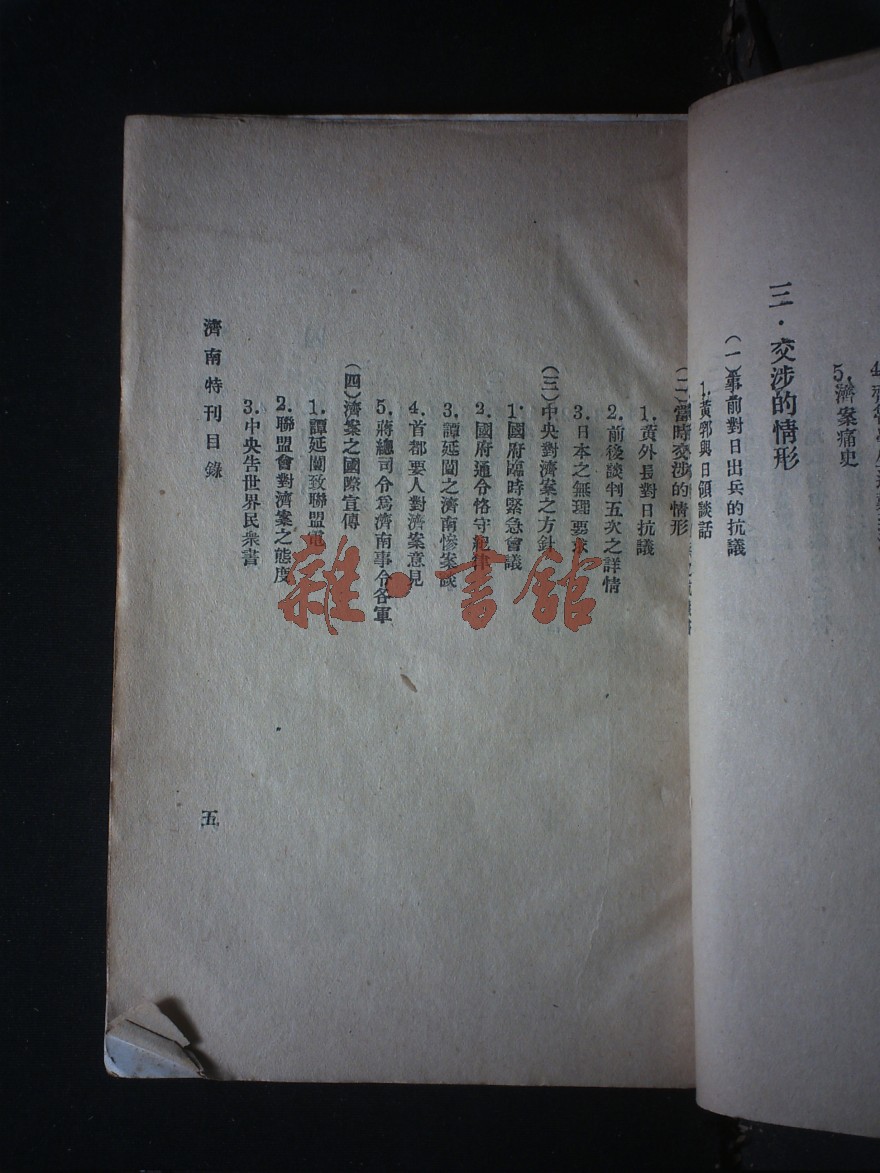 5.濟案痛史
三·交涉的情形
(一)事前對日出兵的抗議
1.黃郛與日領談話
(二)當時交涉的情形
1.黃外長對日抗議
2.前後談判五次之詳情
3.日本之無理要求
(三)中央對濟案之方針
1.國府臨時緊急會議
2.國府通令恪守紀律
3.譚延闓之濟南慘案談
4.首都要人對濟案意見
5.蔣總司令爲濟南事令各軍
(四)濟案之國際宣傳
1.譚延闓致聯盟電
2.聯盟會對濟案之態度
3.中央告世界民衆書
濟南特刊目錄
五
雜·書館